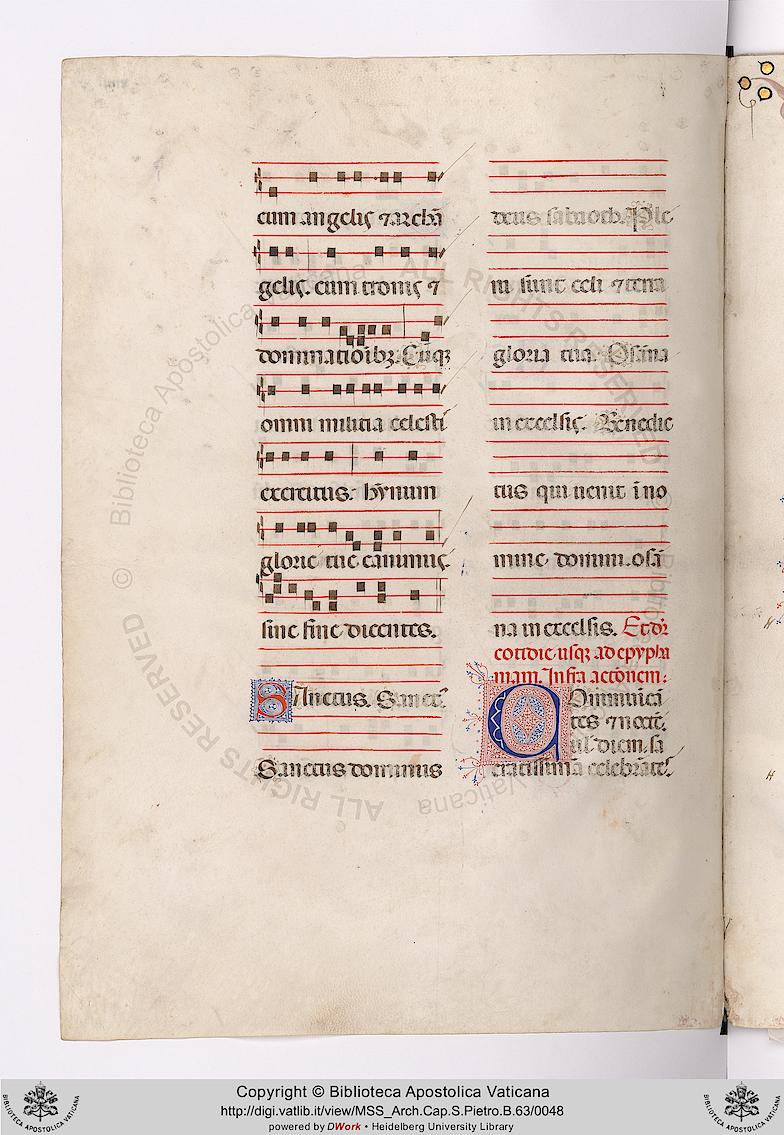 cum angelis ⁊ archã
gelis. cum tronis ⁊
dominatioĩbꝫ. Cũqꝫ
omni militia celesti
exercitus. hymnum
glorie tue canimus.
sine fine dicentes.
SAnctus. Sanct᷒.
Sanctus dominus
deus sabaoth. Ple
ni sunt celi ⁊ terra
gloria tua. Osãna
in excelsis. Benedic
tus qui uenit ĩ no
mine domini. osã
na in excelsis. Et dr̃
cotidie usqꝫ ad epypha
niam. Infra actõnem:
COmunicã
tes ⁊ noctẽ.
uł diem. sa
cratissimã celebrãtes.
Copyright © Biblioteca Apostolica Vaticana
http://digi.vatlib.it/view/MSS_Arch.Cap.S.Pietro.B.63/0048
powered by DWork • Heidelberg University Library
Biblioteca Apostolica Vaticana ALL RIGHTS RESERVED ©